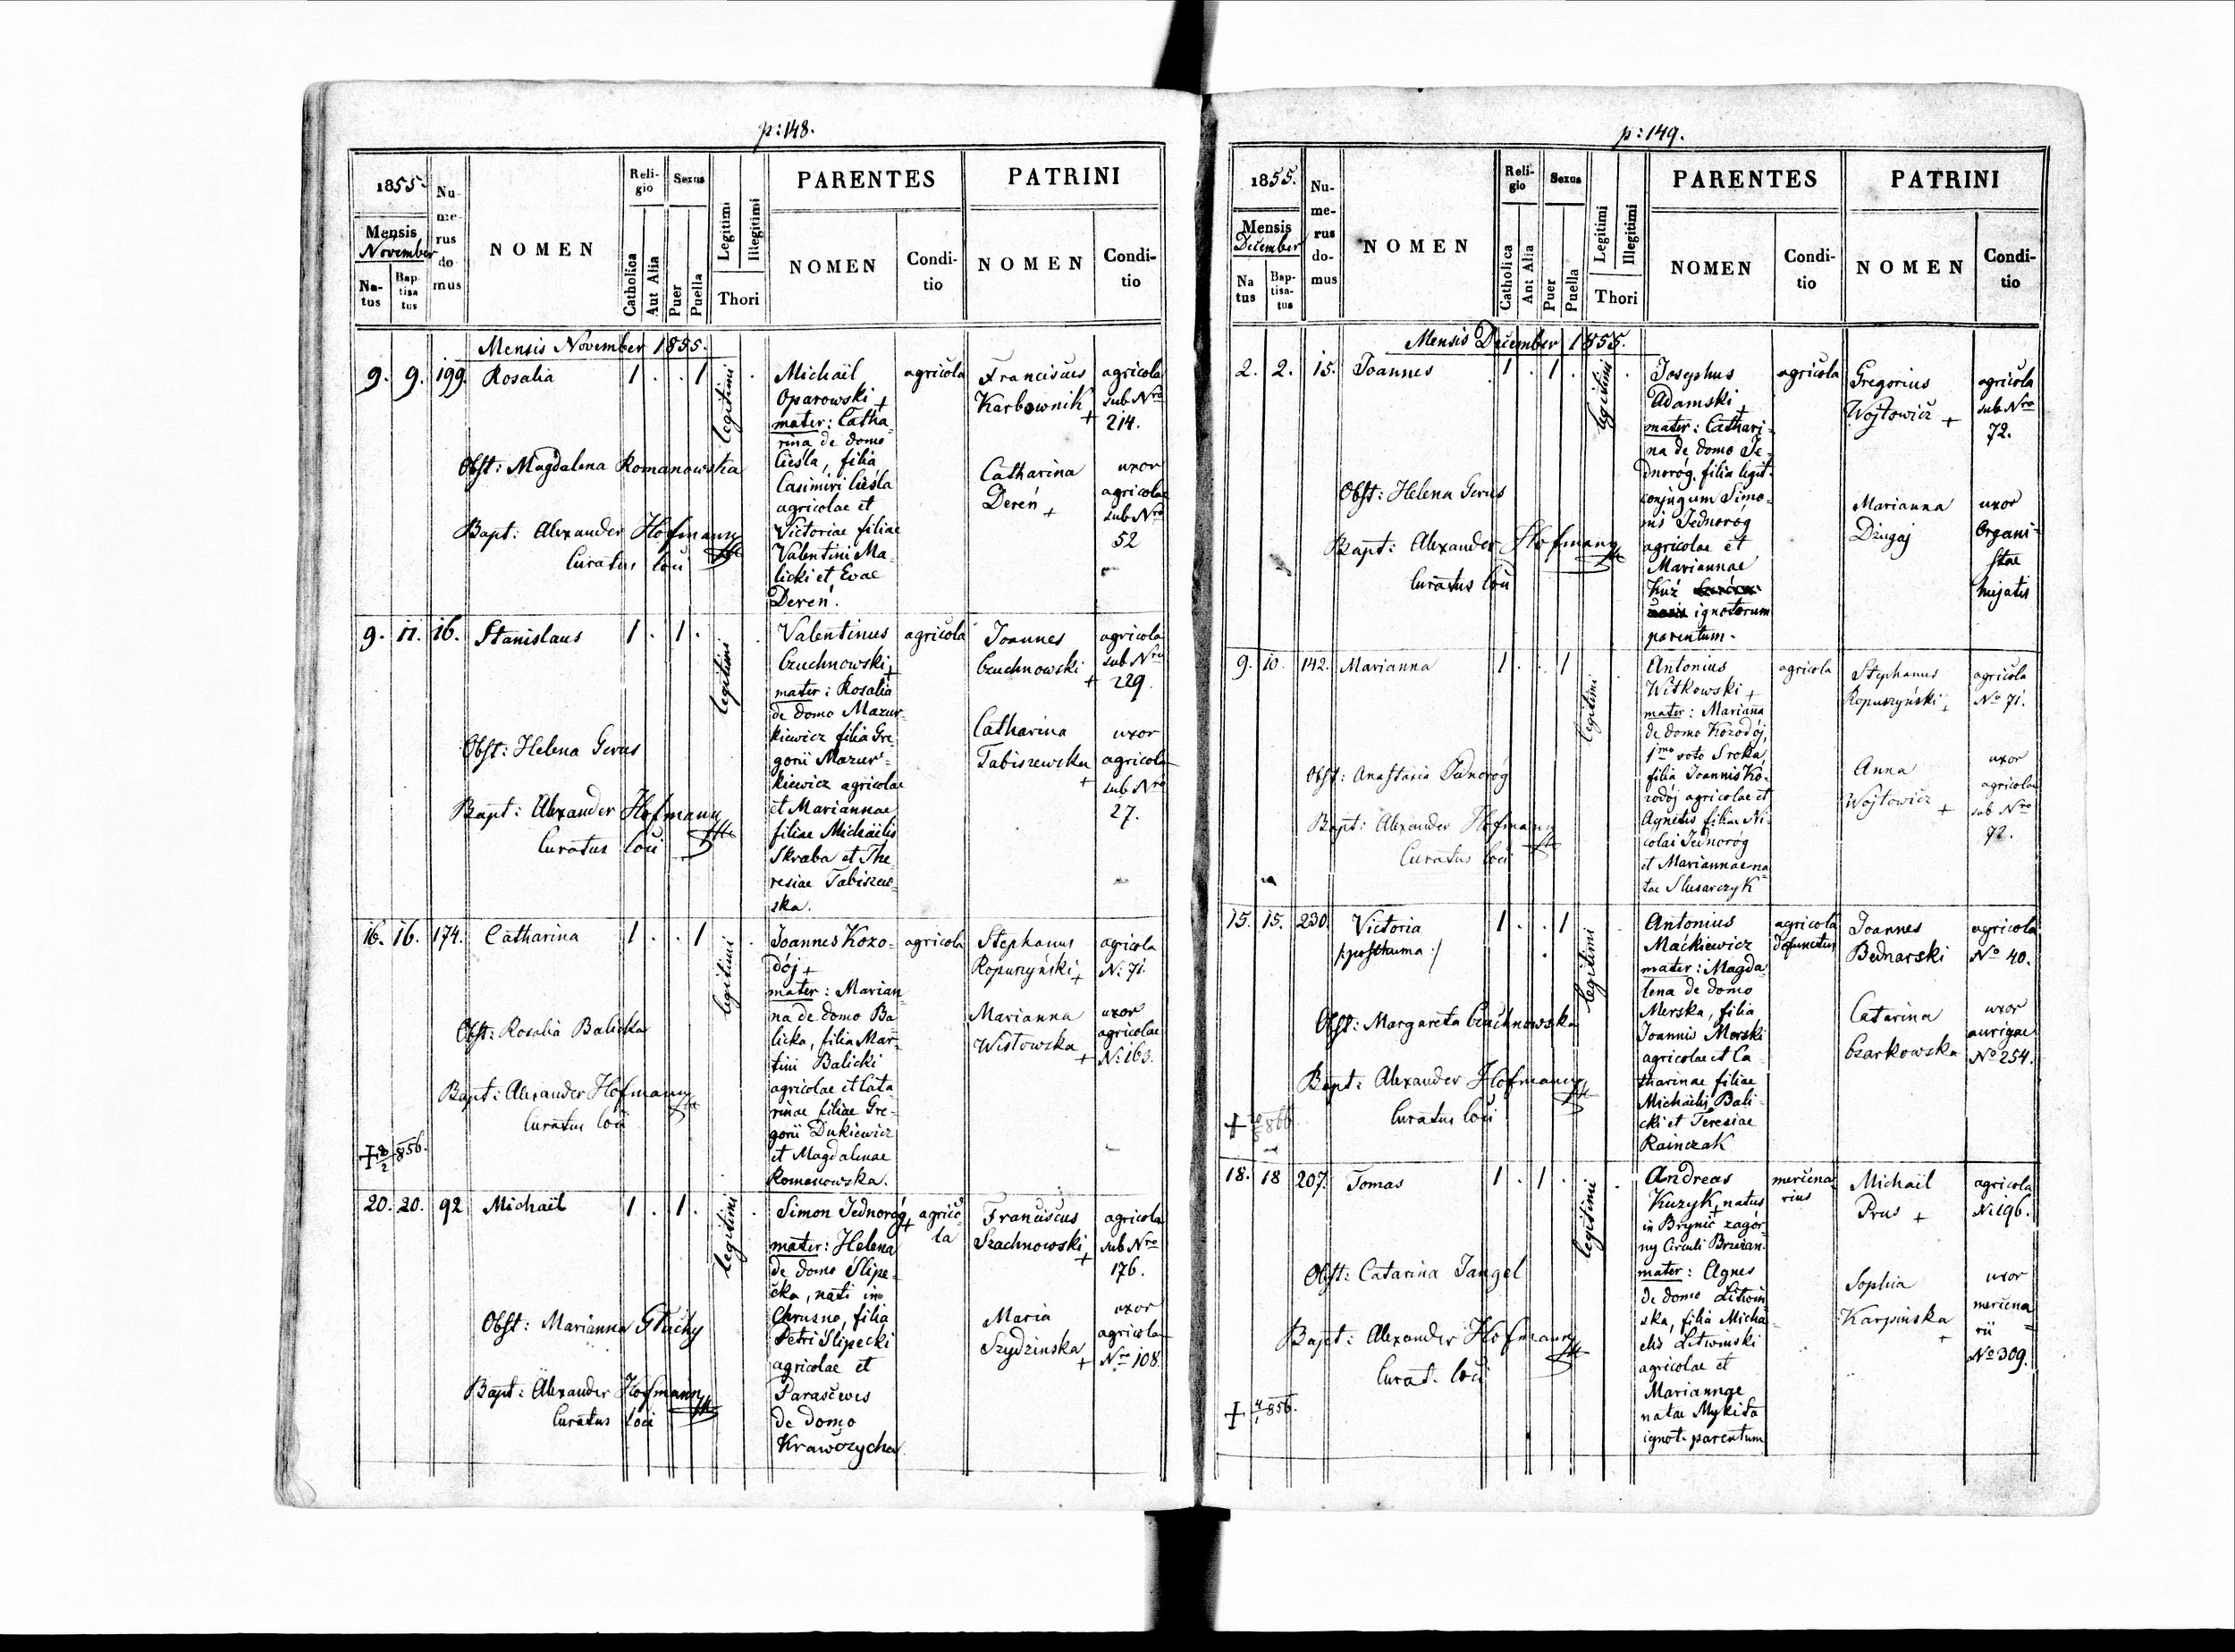 p: 148.
1855.
Mensis
November
Na-
tus
Bap-
tisa
tus
Nu-
me-
rus
do-
mus
NOMEN
Reli-
gio
Catholica
Aut Alia
Sexus
Puer
Puella
Legitimi
Illegitimi
Thori
PARENTES
NOMEN
Condi-
tio
PATRINI
NOMEN
Condi-
tio
Mensis November 1855.
9. 9. 199. Rosalia 1 . . 1 legitimi .
Obst: Magdalena Romanowska
Bapt: Alexander Hofmann
Curatus loci
Michaël
Oparowski +
mater: Catha-
rina de domo
Cieśla, filia
Casimiri Cieśla
agricolae et
Victoriae filiae
Valentini Ma-
licki et Evae
Dereń.
agricola
Franciscus
Karbownik +
agricola
sub Nro
214.
Catharina
Dereń +
uxor
agricolae
sub Nro
52
9. 11. 16. Stanislaus 1 . 1 . legitimi .
Obst: Helena Gerus
Bapt: Alexander Hofmann
Curatus loci
Valentinus
Czuchnowski +
mater: Rosalia
de domo Mazur-
kiewicz filia Gre-
gorii Mazur-
kiewicz agricolae
et Mariannae
filiae Michaëlis
Skraba et The-
resiae Tabiszew-
ska.
agricola
Joannes
Czuchnowski +
agricola
sub Nro
229.
Catharina
Tabiszewska +
uxor
agricolae
sub Nro
27.
16. 16. 174. Catharina 1 . . 1 legitimi .
Obst: Rosalia Balicka
Bapt: Alexander Hofmann
Curatus loci
856.
Joannes Kozo-
dój +
mater: Marian-
na de domo Ba
licka, filia Mar-
tini Balicki
agricolae et Cata
rinae filiae Gre-
gorii Dukiewicz
et Magdalenae
Romanowska.
agricola
Stephanus
Ropuszyński +
agricola
N: 71.
Marianna
Wistowska +
uxor
agricolae
N: 163.
20. 20. 92 Michaël 1 . 1 . legitimi .
Obst: Marianna Głuchy
Bapt: Alexander Hofmann
Curatus loci
Simon Jednoróg +
mater: Helena
de domo Ślipe-
cka, nati in
Chrusno, filia
Petri Ślipecki
agricolae et
Parascewes
de domo
Krawczycha
agrico-
la
Franciscus
Szachnowski +
agricola
sub Nro
176.
Maria
Szydzinska +
uxor
agricolae
Nro 108.
p: 149.
1855.
Mensis
December
Na
tus
Bap-
tisa-
tus
Nu-
me-
rus
do-
mus
NOMEN
Reli-
gio
Catholica
Aut Alia
Sexus
Puer
Puella
Legitimi
Illegitimi
Thori
PARENTES
NOMEN
Condi-
tio
PATRINI
NOMEN
Condi-
tio
Mensis December 1855.
2. 2. 15. Joannes 1 . 1 . legitimi .
Obst: Helena Gerus
Bapt: Alexander Hofmann
Curatus loci
Josephus
Adamski +
mater: Cathari-
na de domo Je-
dnoróg, filia legit.
conjugum Simo-
nis Jednoróg
agricolae et
Mariannae
Kuź
ignotorum
parentum.
agricola
Gregorius
Wojtowicz +
agricola
sub Nro
72.
Marianna
Dzugaj
uxor
Organi-
stae
hujatis
9. 10. 142. Marianna 1 . . 1 legitimi .
Obst: Anastasia Jednoróg
Bapt: Alexander Hofmann
Curatus loci
Antonius
Witkowski +
mater: Marianna
de domo Kozodój,
1mo voto Sroka,
filia Joannis Ko-
zodój agricolae et
Agnetis filiae Ni-
colai Jednoróg
et Mariannae na-
tae Slusarczyk
agricola
Stephanus
Ropuszyński +
agricola
No 71.
Anna
Wojtowicz +
uxor
agricolae
sub Nro
72.
15. 15. 230. Victoria 1 . . 1 legitimi .
/:posthuma:/
Obst: Margareta Czuchnowska
Bapt: Alexander Hofmann
Curatus loci
Antonius
Maćkiewicz
mater: Magda-
lena de domo
Merska, filia
Joannis Merski
agricolae et Ca-
tharinae filiae
Michaëlis Bali-
cki et Teresiae
Rainczak
agricola
defunctus
Joannes
Bednarski
agricola
No 40.
Catarina
Czarkowska
uxor
aurigae
No 254.
18. 18 207. Tomas 1 . 1 . legitimi .
Obst: Catarina Jangel
Bapt: Alexander Hofmann
Curat. loci
856.
Andreas
Kuzyk + natus
in Brynic zagór-
ny Circuli Brzeżan.
mater: Agnes
de domo Litwin
ska, filia Micha-
elis Litwinski
agricolae et
Mariannae
natae Mykita
ignot. parentum
mercena-
rius
Michaël
Prus +
agricola
N: 196.
Sophia
Karpinska +
uxor
mercena-
rii
No 309.